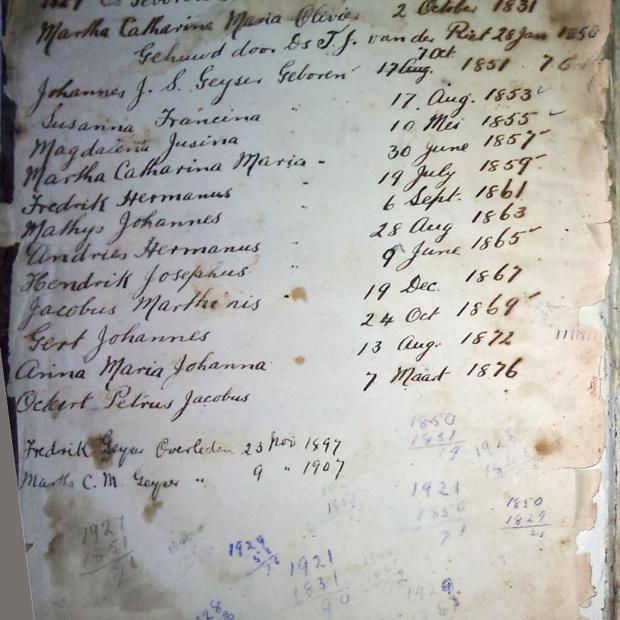 Martha Catharina Maria Olivier 2 October 1831
Gehuwd door Ds T. J. van der Riet 28 Jan 1850
7 Oct
Johannes J. S. Geyser Geboren 17 Aug. 1851
Susanna Francina " 17 Aug. 1853
Magdalena Jusina 10 Mei 1855
Martha Catharina Maria " 30 June 1857
Fredrik Hermanus 19 July 1859
Mathys Johannes 6 Sept. 1861
Andries Hermanus " 28 Aug 1863
Hendrik Josephus " 9 June 1865
Jacobus Marthinis " 19 Dec. 1867
Gert Johannes 24 Oct 1869
Anna Maria Johanna 13 Aug. 1872
Ockert Petrus Jacobus 7 Maart 1876
Fredrik Geyser Overleden 23 Nov 1897
Martha C. M. Geyser " 9 " 1907
1850
1831
19
1921
1850
71
1850
1829
21
1921
1831
90